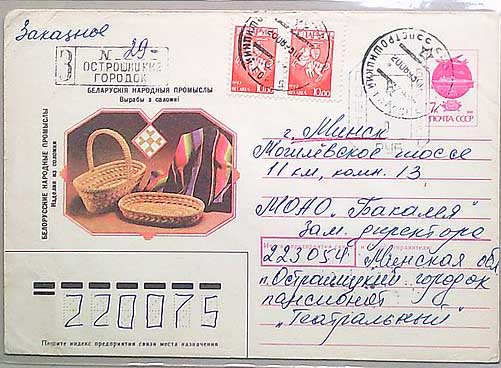 Заказное
З № 29
ОСТРОШИЦКИЙ
ГОРОДОК
БЕЛАРУСКІЯ НАРОДНЫЯ ПРОМЫСЛЫ
Вырабы з саломкі
БЕЛОРУССКИЕ НАРОДНЫЕ ПРОМЫСЛЫ
Изделия из соломки
10.00
10.00
7к
ПОЧТА СССР
г. Минск
Могилёвское шоссе
11 км, комн. 13
МОАО „Бакалея"
Зам. директора
223054 Минская обл
п. Острошицкий городок
пансионат
„Театральный"
220075
Пишите индекс предприятия связи места назначения